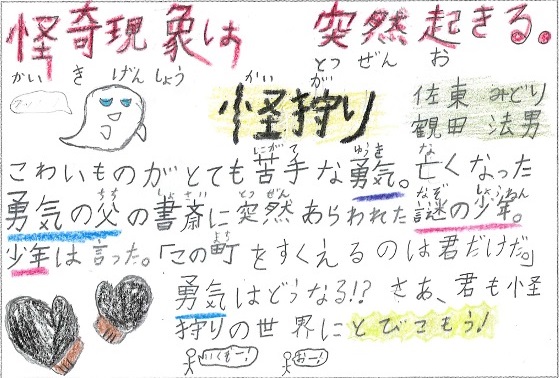 怪奇現象は 突然起きる。
かい き げんしょう とつ ぜん お
かい が
怪狩り
佐東 みどり
鶴田 法男
こわいものがとても苦手な勇気。亡くなった
勇気の父の書斎に突然あらわれた謎の少年。
少年は言った。「この町をすくえるのは君だけだ。」
勇気はどうなる!? さあ、君も怪
狩りの世界にとびこもう!
いくぞー! おー!